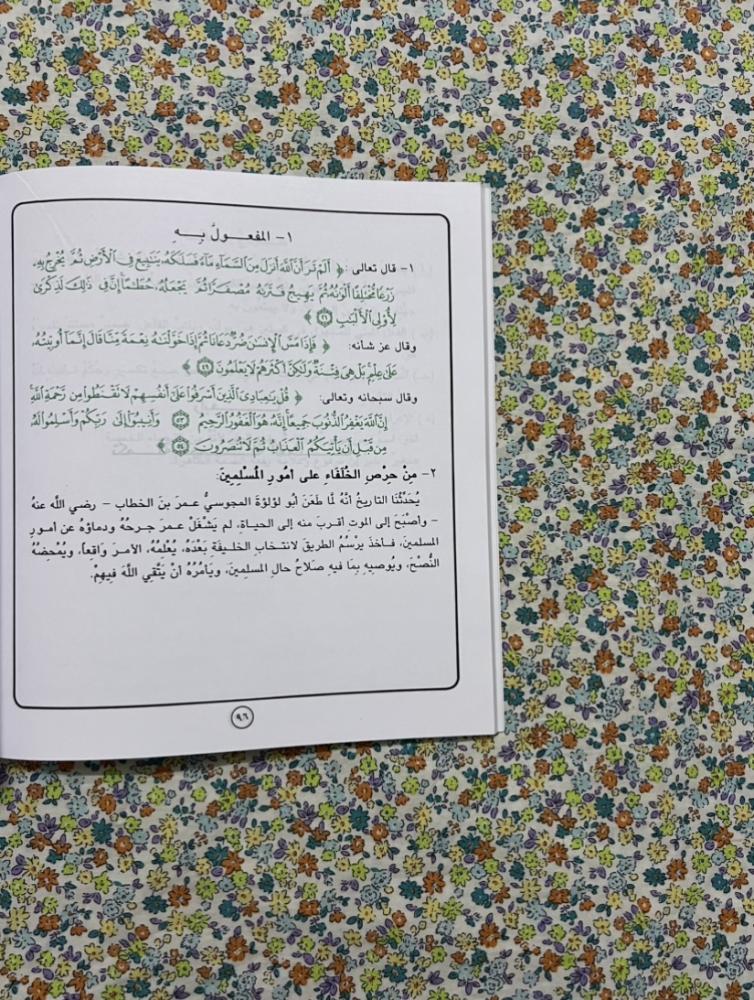 ١- المفعـــولُ بِـــهِ
١- قال تعالى: ﴿ أَلَمْ تَرَ أَنَّ ٱللَّهَ أَنزَلَ مِنَ ٱلسَّمَآءِ مَآءً فَسَلَكَهُۥ يَنَٰبِيعَ فِى ٱلْأَرْضِ ثُمَّ يُخْرِجُ بِهِۦ
زَرْعًا مُّخْتَلِفًا أَلْوَٰنُهُۥ ثُمَّ يَهِيجُ فَتَرَىٰهُ مُصْفَرًّا ثُمَّ يَجْعَلُهُۥ حُطَٰمًا إِنَّ فِى ذَٰلِكَ لَذِكْرَىٰ
لِأُوْلِى ٱلْأَلْبَٰبِ ﴿٢١﴾ ﴾
وقال عز شانه: ﴿ فَإِذَا مَسَّ ٱلْإِنسَٰنَ ضُرٌّ دَعَانَا ثُمَّ إِذَا خَوَّلْنَٰهُ نِعْمَةً مِّنَّا قَالَ إِنَّمَآ أُوتِيتُهُۥ
عَلَىٰ عِلْمٍۭ بَلْ هِىَ فِتْنَةٌ وَلَٰكِنَّ أَكْثَرَهُمْ لَا يَعْلَمُونَ ﴿٤٩﴾ ﴾
وقال سبحانه وتعالى: ﴿ قُلْ يَٰعِبَادِىَ ٱلَّذِينَ أَسْرَفُوا۟ عَلَىٰٓ أَنفُسِهِمْ لَا تَقْنَطُوا۟ مِن رَّحْمَةِ ٱللَّهِ
إِنَّ ٱللَّهَ يَغْفِرُ ٱلذُّنُوبَ جَمِيعًا إِنَّهُۥ هُوَ ٱلْغَفُورُ ٱلرَّحِيمُ ﴿٥٣﴾ وَأَنِيبُوٓا۟ إِلَىٰ رَبِّكُمْ وَأَسْلِمُوا۟ لَهُۥ
مِن قَبْلِ أَن يَأْتِيَكُمُ ٱلْعَذَابُ ثُمَّ لَا تُنصَرُونَ ﴿٥٤﴾ ﴾
٢- مِنْ حِرْصِ الخُلَفَاءِ على امُورِ المُسْلِمِينَ:
يُحَدِّثُنَا التاريخُ انَّهُ لَمَّا طَعَنَ أبُو لؤلؤةَ المجوسيُّ عمرَ بنَ الخطاب - رضي الله عنهُ
- وأصْبَحَ إلى الموتِ أقربَ منه إلى الحياةِ، لم يَشْغَلْ عمرَ جرحُهُ ودماؤُهُ عن امورِ
المسلمينَ، فـأخذَ يرسُمُ الطريقَ لانتخابِ الخليفَةِ بَعْدَهُ، يُعْلِمُهُ، الامرَ وَاقِعاً، ويُمْحِضُهُ
النُّصْحَ، ويُوصيِهِ بِمَا فيهِ صَلاحُ حالِ المسلمينَ، ويَامُرُهُ انْ يَتَّقِي اللَّهَ فيهِمْ.
٩٦